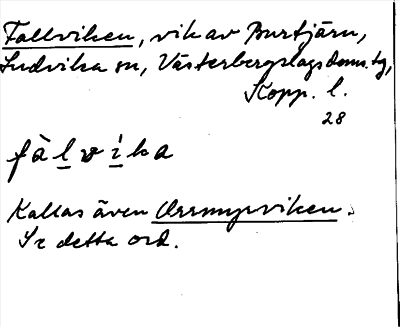 Fallviken, vik av Burtjärn,
Ludvika sn, Västerbergslags doms. tg,
Kopp. l.
28
fàlvìka
Kallas även Orrmyrviken.
Se detta ord.